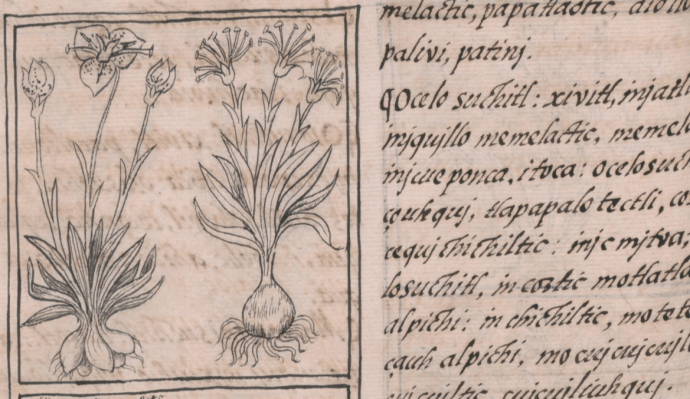 melactic, papatlaotic,
palivi, patinj.
¶Ocelo suchitl: xivitl,
injquillo memelactic,
injcueponca, itoca: ocelosuch
çeuhquj, tlapapalo tectli, co
cequi chichiltic: injc mjtva,
losuchitl, in coztic motlatla
alpichi: in chichiltic, mo tete
cauh alpichi, mo cujcujcujl
cujcujliuhquj.